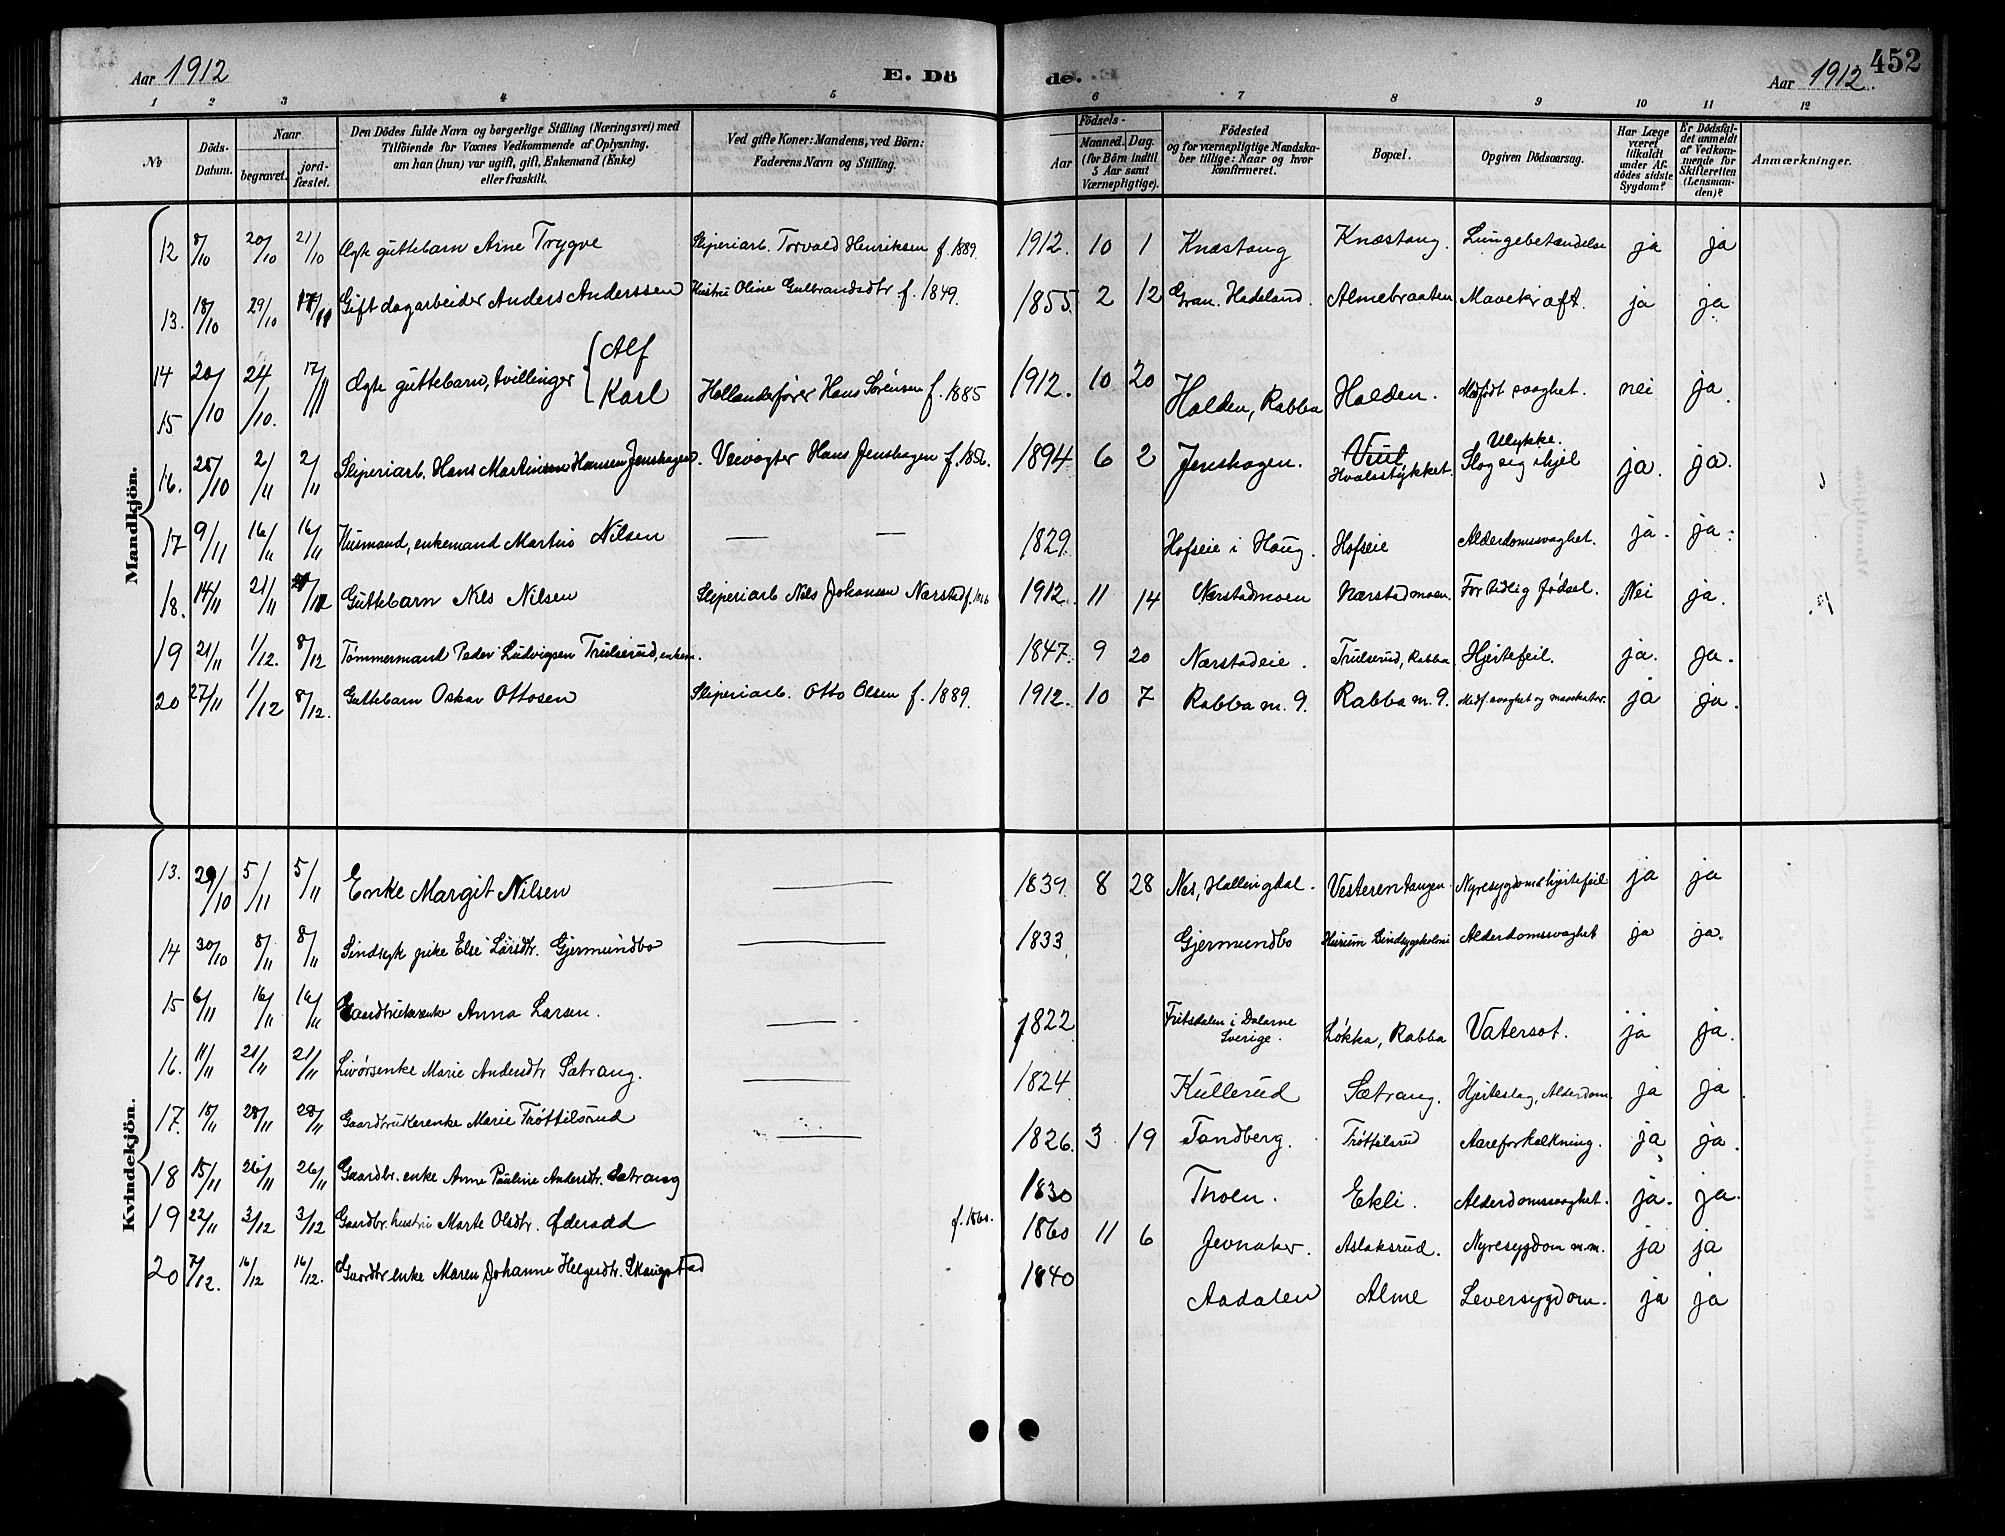 Aar 1912 E. Dö
de. Aar 1912. 452
1 2 3 4 5
6 7 8 9 10 11 12
No
Döds-Datum.
Naar
begravet.
jord-fæstet.
Den Dödes fulde Navn og borgerlige Stilling (Næringsvei) med
Tilföiende for Voxnes Vedkommende af Oplysning,
om han (hun) var ugift, gift, Enkemand (Enke)
eller fraskilt.
Ved gifte Koner: Mandens, ved Börn:
Faderens Navn og Stilling.
Födsels-
Aar
Maaned. Dag.
(for Börn indtil
5 Aar samt
Værnepligtige).
Födested
og for værnepligtige Mandska-
ber tillige: Naar og hvor
konfirmeret.
Bopæl.
Opgiven Dödsaarsag.
Har Læge
været
tilkaldt
under Af-
dödes sidste
Sygdom?
Er Dödsfal-
det anmeldt
af Vedkom-
mende for
Skifteretten
(Lensman-
den)?
Anmærkninger.
Mandkjön.
12 8/10 20/10 21/10 Ægte guttebarn Arne Trygve Sliperiarb. Torvald Henriksen f. 1889. 1912. 10 1 Knæstang Knæstang. Lungebetændelse ja ja
13. 18/10 29/10 17/11 Gift dagarbeider Anders Anderssen Hustru Oline Gulbrandsdtr. f. 1849. 1855. 2 12 Gran. Hadeland. Almebraaten Mavekræft. ja ja
14 15 20/10 24/10. 17/11 Ægte guttebarn, tvillinger { Alf Karl Hollænderfører Hans Sørensen f. 1885 1912. 10 20 Halden, Rabba Halden. Medfødt svaghet. nei ja.
16. 25/10 2/11 2/11 Sliperiarb. Hans Martinsen Hansen Jenshagen. Veivogter Hans Jenshagen f. 1856. 1894 6 2 Jenshagen. Viul Hvalsstykket. Ulykke. Slog sig ihjel ja. ja.
17 9/11 16/11 16/11 Husmand, enkemand Martius Nilsen — — 1829. Hofseie i Haug. Hofseie Alderdomssvaghet. ja. ja.
18. 14/11 21/11 Guttebarn Nils Nilsen Sliperiarb Nils Johansen Nærstad 1912. 11 14 Nærstadmoen Nærstadmoen. For tidlig fødsel. Nei ja.
19 21/11 1/12. 8/12 Tømmermand Peder Ludvigsen Trulserud, enkem. 1847. 9 20 Nærstadeie. Trulserud, Rabba Hjertefeil. ja. ja.
20 27/11 1/12 8/12. Guttebarn Oskar Ottosen Sliperiarb. Otto Olsen f. 1889. 1912. 10 7 Rabba m. 9. Rabba m. 9. Medf. svaghet og mavekatar. ja ja.
Kvindekjön.
13. 29/10 5/11 5/11 Enke Margit Nilsen — 1839. 8 28 Nes, Hallingdal. Vesterentangen. Nyresygdom & hjertefeil ja ja
14 30/10 8/11 8/11 Sindsyk pike Else Larsdtr. Gjermundbo — 1833. Gjermundbo Hurum Sindsygekoloni Alderdomssvaghet ja ja.
15 6/11 16/11 16/11 Anna Larsen. — 1822 i Dalarne Sverige. Løkka, Rabba Vatersot. ja ja.
16. 11/11 21/11 21/11 Livørsenke Marie Andersdtr Sætrang. — 1824 Kullerud Sætrang. Hjerteslag, Alderdom ja ja.
17. 18/11 28/11 28/11 Gaardbrukerenke Marie Trøttilsrud — 1826. 3 19 Tandberg. Trøttilsrud Aareforkalkning. ja ja.
18 15/11 26/11 26/11 Gaardbr. enke Anne Pauline Andersdtr. Sætrang 1830 Thoen. Ekli. Alderdomssvaghet. ja. ja.
19 22/11 3/12 3/12 Gaardbr. hustru Marte Olsdtr. f. 1860. 1860 11 6 Jevnaker. Aslaksrud. Nyresygdom m.m. ja ja
20 7/12. 16/12 16/12. Gaardbr enke Maren Johanne Helgesdtr. Skaugstad 1840 Aadalen Alme Leversygdom. ja ja